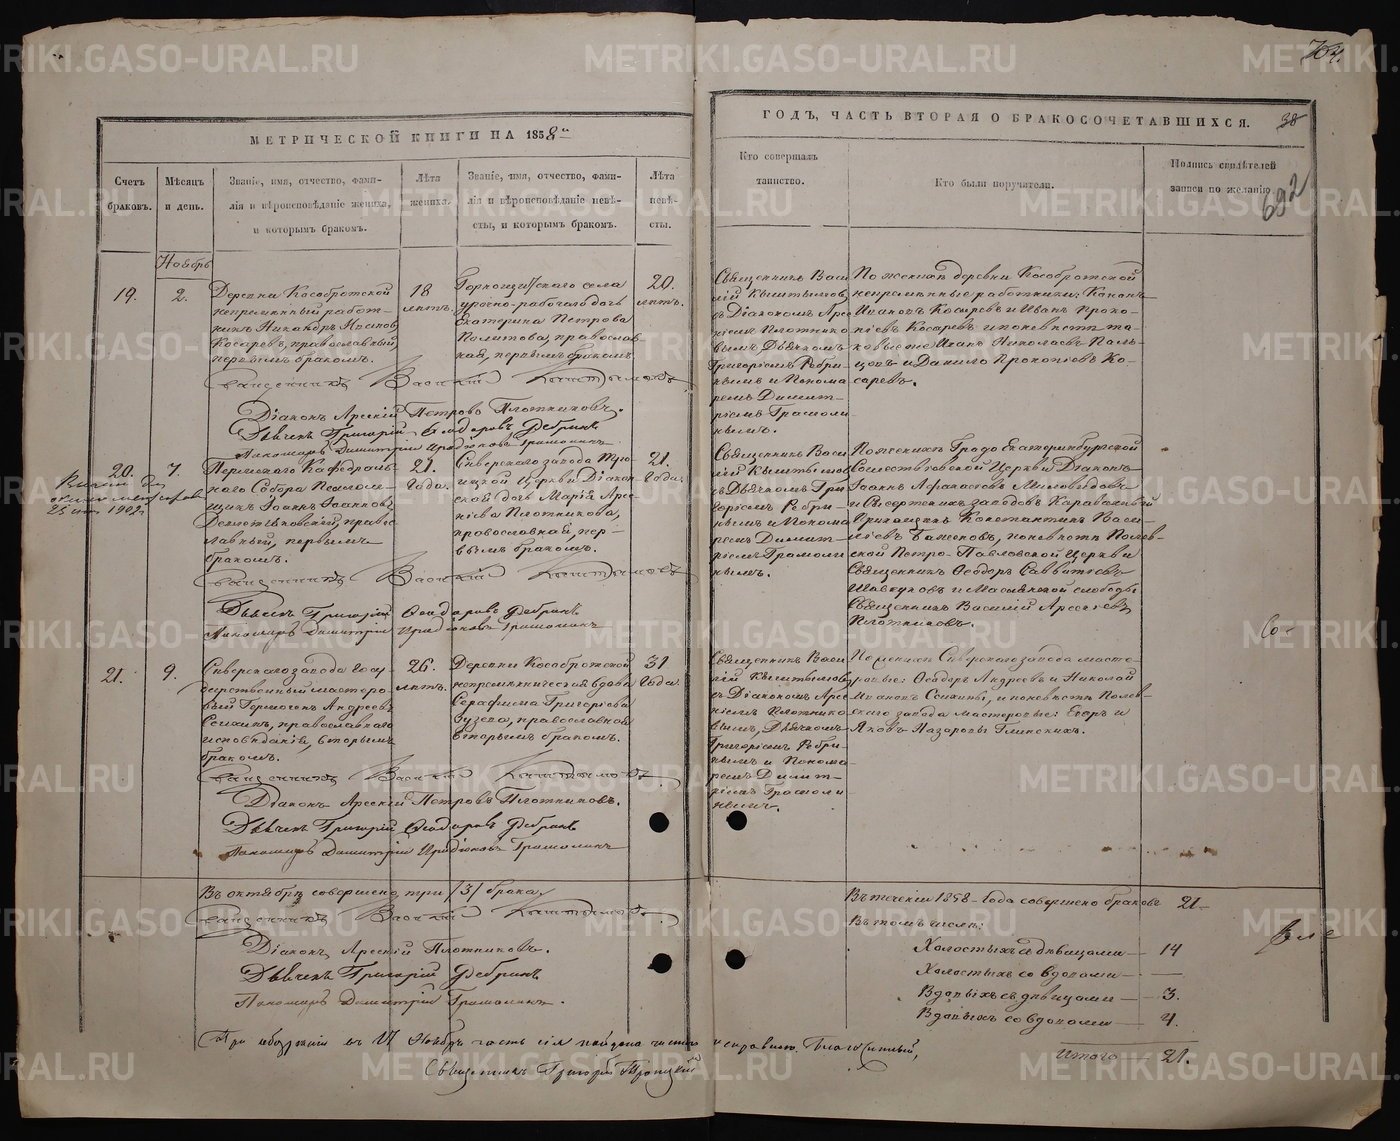 704.
МЕТРИЧЕСКОЙ КНИГИ НА 1858й
ГОДЪ, ЧАСТЬ ВТОРАЯ О БРАКОСОЧЕТАВШИХСЯ.
38
692
Счетъ
браковъ.
Мѣсяцъ
и день.
Званіе, имя, отчество, фами-
лія и вѣроисповѣданіе жениха,
и которымъ бракомъ.
Лѣта
жениха.
Званіе, имя, отчество, фами-
лія и вѣроисповѣданіе невѣ-
сты, и которымъ бракомъ.
Лѣта
невѣ-
сты.
Кто совершалъ
таинство.
Кто были поручители.
Подпись свидѣтелей
записи по желанію.
Ноябрь
19.
2.
Деревни Кособродской
непремѣнный работ-
никъ Никандръ Ивановъ
Косаревъ, православный,
первымъ бракомъ.
18
лѣтъ.
Горнощитскаго села
урочно-рабочаго дочь
Екатерина Петрова
православ-
ная, первымъ бракомъ
20.
лѣтъ.
Священникъ Васи-
лій Кыштымовъ
съ Діакономъ Арсе-
ніемъ Плотнико-
вымъ, Дьячкомъ
Григоріемъ Ребри-
нымъ и Понома-
ремъ Димит-
ріемъ Грамоли-
нымъ.
По женихѣ деревни Кособродской
непремѣнные работники:
Ивановъ Косаревъ и Иванъ Проко-
піевъ Косаревъ; и по невѣстѣ та-
ковые же Исакъ Николаевъ Паль-
цевъ и Данило Прокопіевъ Ко-
саревъ.
Священникъ Василій Кыштымовъ
Діаконъ Арсеній Петровъ Плотниковъ.
Дьячекъ Григорій Феодоровъ Ребринъ
Пономарь Димитрій Грамолинъ
20.
7.
Пермскаго Кафедраль-
наго Собора Псалом-
щикъ Іоаннъ Іоанновъ
правос-
лавный, первымъ
бракомъ.
21.
года.
Сѣверскаго завода Тро-
ицкой Церкви Діакон-
ская дочь Марія Арсе-
ніева Плотникова,
православная, пер-
вымъ бракомъ.
21.
года.
Священникъ Васи-
лій Кыштымовъ
съ Дьячкомъ Гри-
горіемъ Ребри-
нымъ и Понома-
ремъ Димит-
ріемъ Грамоли-
нымъ.
По женихѣ Града Екатеринбургской
Сошествовской Церкви Діаконъ
Іоаннъ Афанасіевъ Миловидовъ
и Сысертскихъ заводовъ
Константинъ Васи-
ліевъ по невѣстѣ Полев-
ской Петро-Павловской Церкви
Священникъ Феодоръ Савватіевъ
и Маслянской слободы
Священникъ Василій Арсеніевъ
Плотниковъ.
25 1902г.
Священникъ Василій Кыштымовъ
Дьячекъ Григорій Феодоровъ Ребринъ
Пономарь Димитрій Грамолинъ
21.
9.
Сѣверскаго завода госу-
дарственный мастеро-
вый Гермогенъ Андреевъ
православнаго
исповѣданія, вторымъ
бракомъ.
26.
лѣтъ.
Деревни Кособродской
непремѣнническая вдова
Серафима Григоріева
Зуева, православной
вторымъ бракомъ.
31
года.
Священникъ Васи-
лій Кыштымовъ
съ Діакономъ Арсе-
ніемъ Плотнико-
вымъ, Дьячкомъ
Григоріемъ Ребри-
нымъ и Понома-
ремъ Димит-
ріемъ Грамоли-
нымъ.
По женихѣ Сѣверскаго завода масте-
ровые: Феодоръ Андреевъ и Николай
Ивановъ и по невѣстѣ Полев-
скаго завода мастеровые: Егоръ и
Яковъ Назаровы Глинскихъ.
Со-
Священникъ Василій Кыштымовъ
Діаконъ Арсеній Петровъ Плотниковъ.
Дьячекъ Григорій Феодоровъ Ребринъ
Пономарь Димитрій Грамолинъ
Въ октябрѣ совершено три /3/ брака.
Священникъ Василій Кыштымовъ.
Діаконъ Арсеній Плотниковъ.
Дьячекъ Григорій Ребринъ
Пономарь Димитрій Грамолинъ.
Въ теченіи 1858 года совершено браковъ 21.
Въ томъ числѣ:
Холостыхъ съ дѣвицами — 14
Холостыхъ со вдовами — —
Вдовыхъ съ дѣвицами — 3.
Вдовыхъ со вдовами — 4.
Итого — 21.
При обозрѣніи въ 17 Ноября часть сія найдена Благочинный,
Священникъ Григорій Троицкій
METRIKI.GASO-URAL.RU